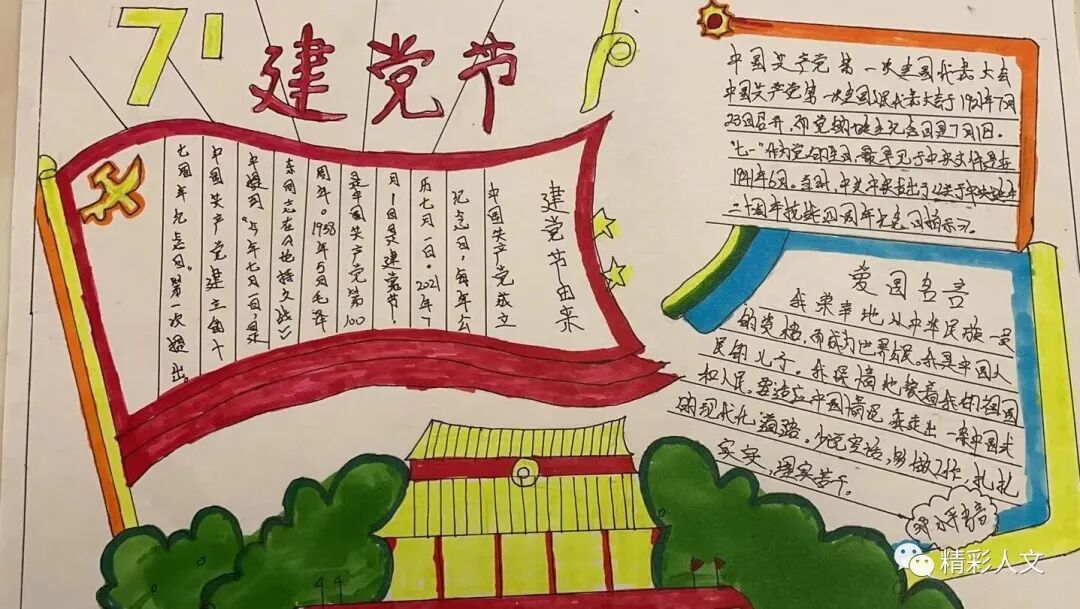 71
建党节
建党节由来
中国共产党成立
纪念日，每年公
历七月一日。2021年7
月1日是建党节！
是中国共产党第100
周年。1938年5月毛泽
东同志在《论持久战》
中提到“今年七月一日，是
中国共产党建立的十
七周年纪念日”第一次提出。
中国共产党第一次全国代表大会
中国共产党第一次全国代表大会于1921年7月
23日召开，而党的诞生纪念日是7月1日。
“七一”作为党的生日，最早见于中央文件是在
1941年6月。当时，中共中央发出了《关于中央
二十周年抗战四周年纪念日指示》。
爱国名言
我荣幸地从中华民族一员
的资格，而成为世界公民。我是中国人
民的儿子。我深情地爱着我的祖国
和人民。要适应中国情况，我走出一条中国式
的现代化道路。少说空话，多做工作，扎扎
实实，埋头苦干。
精彩人文